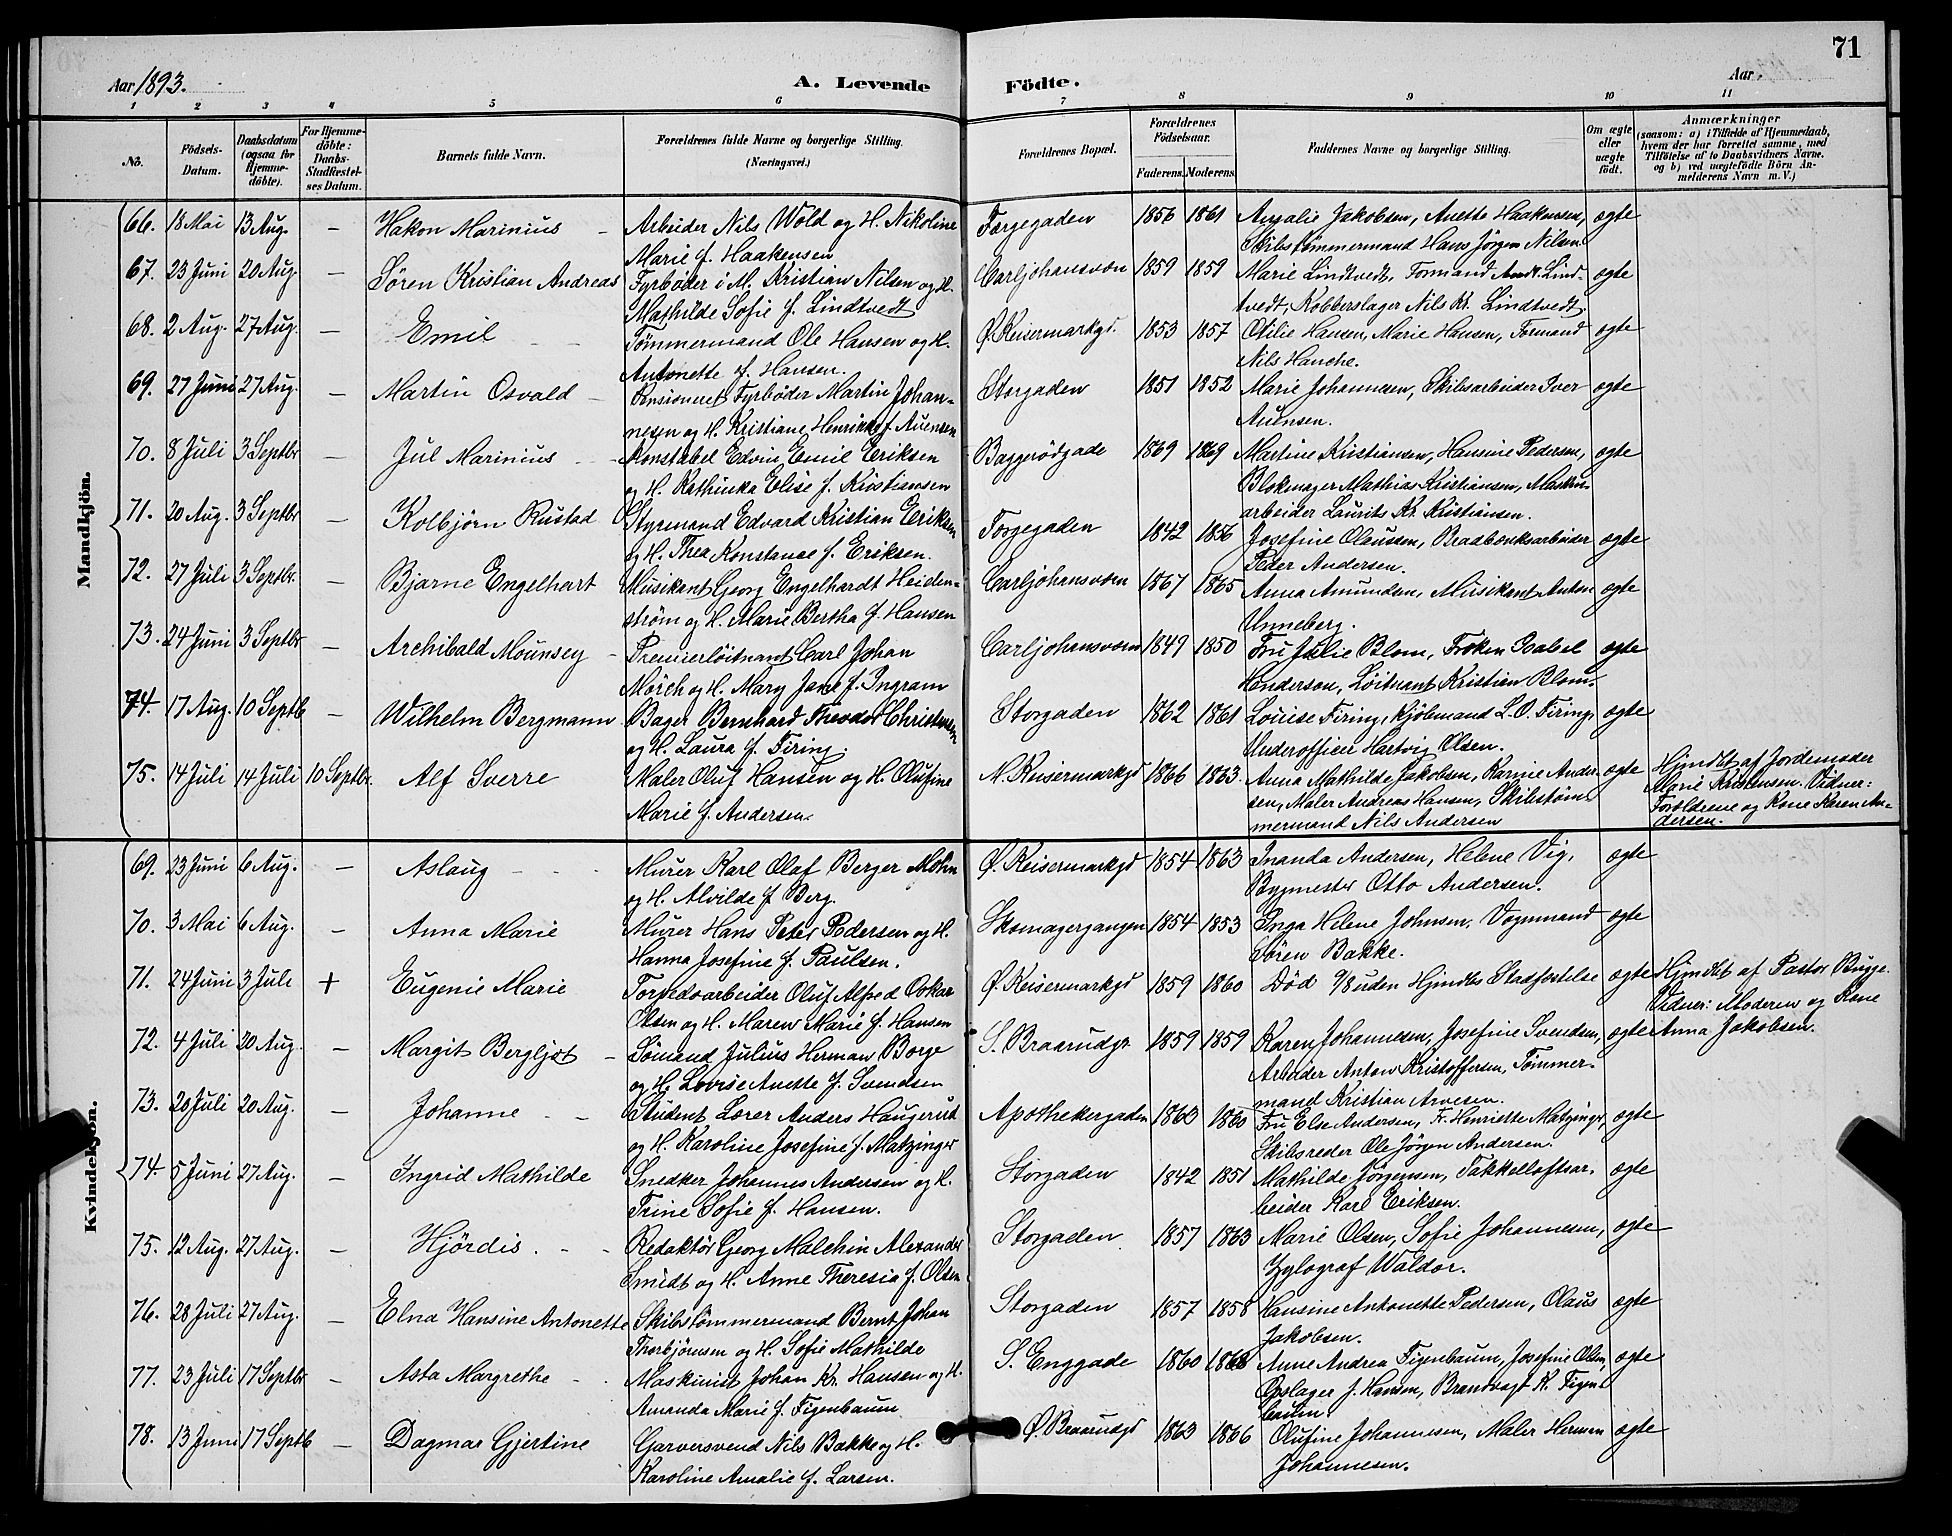 71
Aar 1893. A. Levende Födte. Aar
1 2 3 4 5 6 7 8 9 10 11
No. Födsels-Datum. Daabsdatum (ogsaa for Hjemme-döbte). For Hjemme-döbte: Daabs-Stadfæstel-ses Datum. Barnets fulde Navn. Forældrenes fulde Navne og borgerlige Stilling. (Næringsvei.) Forældrenes Bopæl. Forældrenes Födselsaar. Faderens. Moderens. Faddernes Navne og borgerlige Stilling. Om ægte eller uægte födt. Anmærkninger (saasom: a) i Tilfælde af Hjemmedaab, hvem der har forrettet samme, med Tilföielse af to Daabsvidners Navne, og b) ved uægtefödte Börn An-melderens Navn m. V.)
Mandkjön.
66. 18 Mai 13 Aug. — Hakon Marinius — Arbeider Nils Wold og H. Nikoline Torgegaden 1856 1861 Amalie Jakobsen, Anette Haakensen, ægte
Marie f. Haakensen Skibstömmermand Hans Jörgen Nilsen
67. 23 Juni 20 Aug. — Sören Kristian Andreas Fyrböder i M. Kristian Nilsen og H. Carljohansværn 1859 1859 Marie Lindtvedt, Formand Andr. Lind- ægte
Mathilde Sofie f. Lindtvedt tvedt, Kobberslager Nils Kr. Lindtvedt.
68. 2 Aug. 27 Aug. — Emil — — Tömmermand Ole Hansen og H. Ø. Keisermarkgd. 1853 1857 Otilie Hansen, Marie Hansen, Formand ægte
Antonette f. Hansen. Nils Hanche.
69. 27 Juni 27 Aug. — Martin Osvald — Pensioneret Fyrböder Martin Johan- Storgaden 1851 1852 Marie Johannesen, Skibsarbeider Iver ægte
nesen og H. Kristiane Henrikke f. Auensen Auensen.
70. 8 Juli 3 Septbr — Jul Marinius — Konstabel Edvin Emil Eriksen Baggerödgade 1869 1869 Martine Kristiansen, Hansine Pedersen, ægte
og H. Kathinka Elise f. Kristiansen Blokmager Mathias Kristiansen, Maskin-
arbeider Laurits Kr. Kristiansen.
71. 20 Aug. 3 Septbr — Kolbjörn Rustad Styrmand Edvard Kristian Eriksen Torgegaden 1842 1856 Josefine Olaussen, Bradbænksarbeider ægte
og H. Thea Konstance f. Eriksen. Peder Andersen.
72. 27 Juli 3 Septbr. — Bjarne Engelhart Musikant Georg Engelhardt Heiden- Carljohansværn 1867 1865 Anna Amundsen, Musikant Anton ægte
ström og H. Marie Bertha f. Hansen Unneberg.
73. 24 Juni 3 Septbr — Archibald Mounsey — Premierlöitnant Carl Johan Carljohansværn 1849 1850 Fru Julie Blom, Fröken Isabel ægte
Mörch og H. Mary Jane f. Ingram Henderson, Löitnant Kristian Blom.
74. 17 Aug. 10 Septb — Wilhelm Bergmann Bager Bernhard Theodor Christensen Storgaden 1862 1861 Louise Firing, Kjöbmand L. O. Firing, ægte
og H. Laura f. Firing. Underofficer Hartvig Olsen.
75. 14 Juli 14 Juli 10 Septbr. Alf Sverre Maler Oluf Hansen og H. Olufine N. Keisermarkgd 1866 1863. Anna Mathilde Jakobsen, Karine Ander- ægte Hjmdbt af Jordemoder
Marie f. Andersen. sen, Maler Andreas Hansen, Skibstöm- Marie Kristensen. Vidner:
mermand Nils Andersen Forældrene og Kone Karen An-
dersen.
Kvindekjön.
69. 23 Juni 6 Aug. — Aslaug — — Murer Karl Olaf Berger Mohn Ø. Keisermarkgd 1854 1863 Inanda Andersen, Helene Vig, ægte
og H. Alvilde f. Berg. Bygmester Otto Andersen.
70. 3 Mai 6 Aug. — Anna Marie Murer Hans Peter Pedersen og H. Skomagergangen 1854 1853 Inga Helene Johnsen, Vognmand ægte
Hanna Josefine f. Paulsen. Sören Bakke.
71. 24 Juni 3 Juli + Eugenie Marie Torpedoarbeider Oluf Alfred Oskar Ø. Keisermarkgd 1859 1860 Död 9/8 uden Hjmdbs Stadfæstelse ægte Hjmdbt af Pastor Bugge.
Olsen og H. Maren Marie f. Hansen Vidner: Moderen og Kone
72. 4 Juli 20 Aug. — Margit Bergljot — Sömand Julius Herman Borge S. Braarudgt 1859 1859 Karen Johannesen, Josefine Svendsen, ægte Anna Jakobsen.
og H. Lovise Anette f. Svendsen Arbeider Anton Kristoffersen, Tömmer-
mand Kristian Arvesen.
73. 20 Juli 20 Aug. — Johanne — — Student Lærer Anders Haugerud Apothekergaden 1863 1860 Fru Else Andersen, Fr. Henriette Matzinger, ægte
og H. Karoline Josefine f. Matzinger Skibsreder Ole Jörgen Andersen.
74. 5 Juni 27 Aug. — Ingrid Mathilde Snedker Johannes Andersen og H. Storgaden 1842 1851 Mathilde Jörgensen, Takkelloftsar- ægte
Trine Sofie f. Hansen. beider Karl Eriksen.
75. 12 Aug. 27 Aug. — Hjördis. — — Redaktör Georg Malchin Alexander Storgaden 1857 1863 Marie Olsen, Sofie Johannesen, ægte
Smidt og H. Anne Theresia f. Olsen Zylograf Waldor.
76. 28 Juli 27 Aug. — Elna Hansine Antonette Skibstömmermand Bernt Johan Storgaden 1857 1858 Hansine Antonette Pedersen, Olaus ægte
Thorbjörnsen og H. Sofie Mathilde Jakobsen.
77. 23 Juli 17 Septbr — Asta Margrethe — Maskinist Johan Kr. Hansen og H. S. Enggade 1860 1868 Anne Andrea Figenbaum, Josefine Olsen, ægte
Amanda Marie f. Figenbaum Opslager J. Hansen, Brandvagt K. Figen-
baum
78. 13 Juni 17 Septb — Dagmar Gjertine Garversvend Nils Bakke og H. Ø. Braarudgd 1863 1866 Olufine Johannesen, Maler Herman ægte
Karoline Amalie f. Larsen. Johannesen.